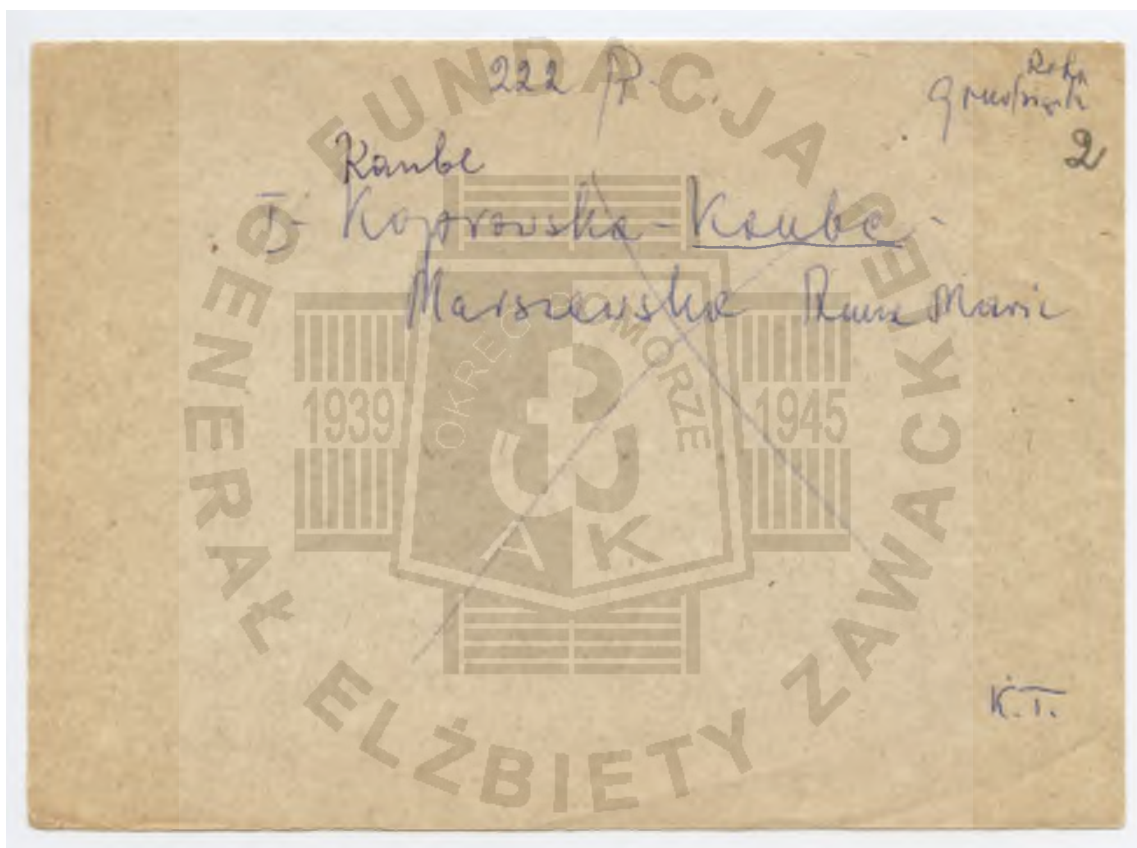 222 P.
Grudziądz
2
Kaube
I - Koprowska - Kaube -
Marszewska Anna Maria
K.T.
FUNDACJA GENERAŁ ELŻBIETY ZAWACKIEJ
OKRĘG POMORZE
1939 1945
AK